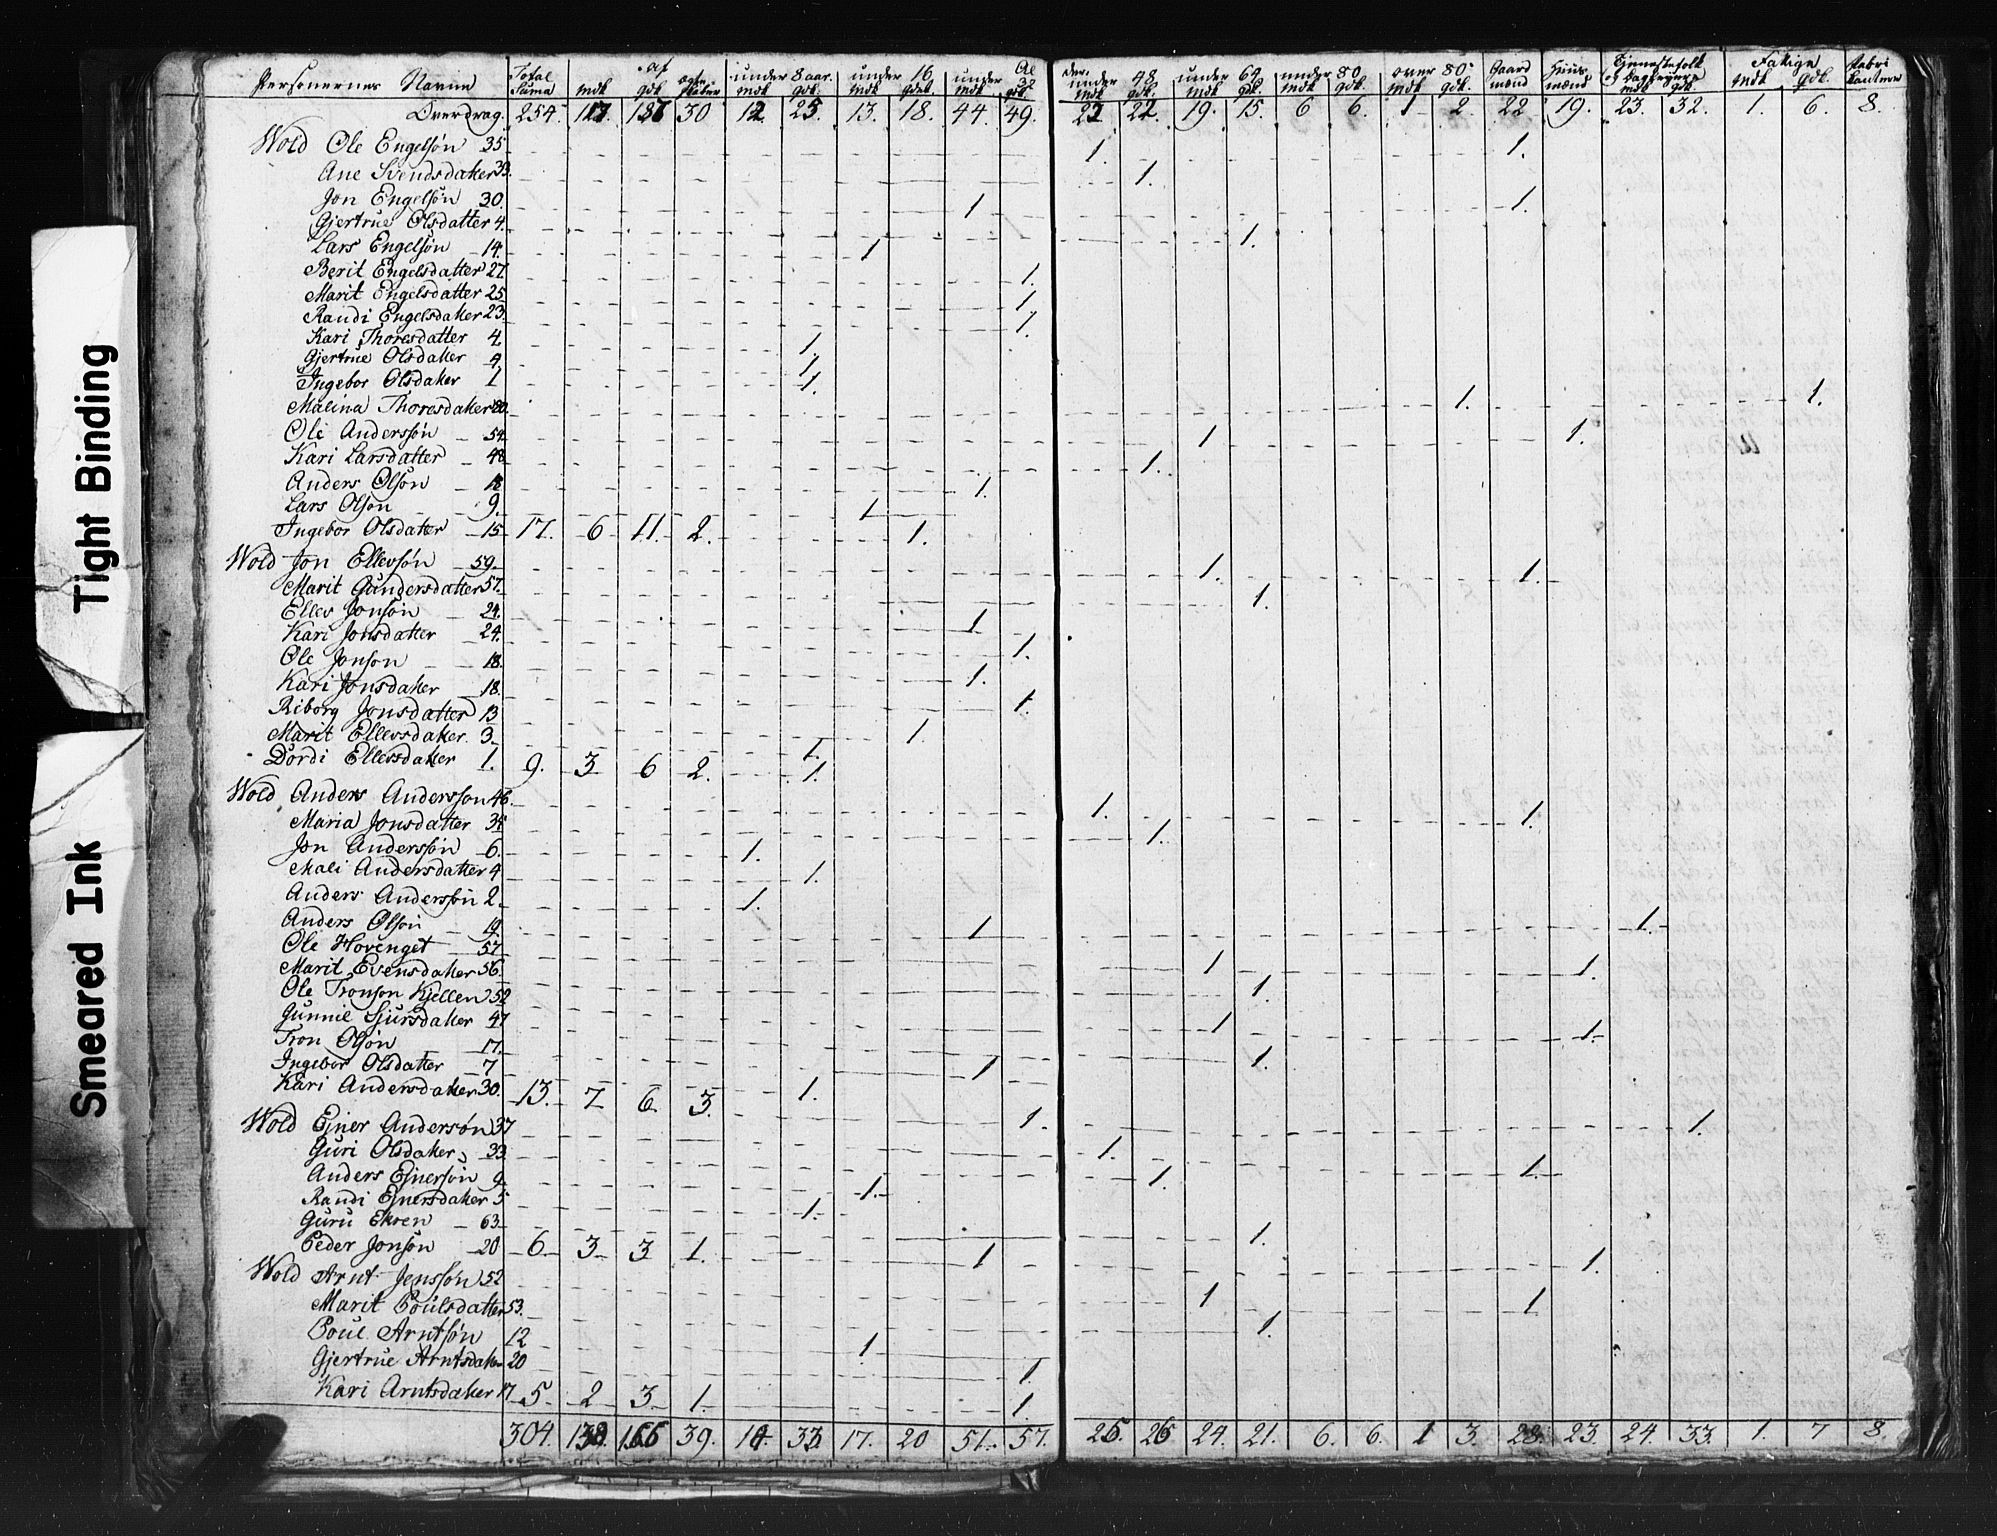 Tight Binding
Smeared Ink
Personernes Navne Total Suma af mdk gdk under 8 aar. mdk gdk. under 16 mdk gdk. under 32 mdk gdk Al der. under 48 mdk gdk. under 64 mdk gdk. under 80 mdk gdk. over 80 mdk gdk. Gaard mænd Huus mænd Tienestefolk og mdk gdk. Fattige mdk gdk.
Overdrag. 254. 117 137 30 12 25 13. 18. 44. 49. 22 22. 19. 15. 6 6. 1 2. 22 19. 23. 32. 1. 6. 8.
Wold Ole Engelsøn 35 1. 1.
Ane Svendsdatter 39. 1.
Jon Engelsøn 30. 1 1.
Gjertrue Olsdatter 4. 1.
Lars Engelsøn 14. 1
Berit Engelsdatter 27. 1.
Marit Engelsdatter 25 1.
Randi Engelsdatter 23. 1.
Kari Thoresdatter 4. 1.
Gjertrue Olsdatter 4. 1.
Ingebor Olsdatter 1 1.
Malina Thoresdatter 80. 1. 1.
Ole Anderssøn 54 1 1.
Kari Larsdatter 48 1.
Anders Olsøn 18 1.
Lars Olsøn 9. 1
Ingebor Olsdatter 15 17. 6 11. 2. 1.
Wold Jon Ellevsøn 59. 1. 1.
Marit Gundersdatter 57. 1.
Ellev Jonsøn 24. 1
Kari Jonsdatter 24. 1.
Ole Jonson 18. 1.
Kari Jonsdatter 18. 1.
Riborg Jonsdatter 13 1.
Marit Ellevsdatter. 3. 1.
Dordi Ellevsdatter 1. 9. 3 6 2. 1.
Wold Anders Andersson 46. 1. 1.
Maria Jonsdatter 35 1.
Jon Anderssøn 6. 1.
Mali Andersdatter 4 1.
Anders Anderssøn 2. 1.
Anders Olsøn 19 1 1.
Ole Hovenget 57 1 1.
Marit Evensdatter 56. 1.
Ole Tronson Kjellen 52 1 1.
Gunnil Sjursdatter 47 1.
Tron Olsøn 17. 1
Ingebor Olsdatter 7 1.
Kari Andersdatter 30. 13. 7 6. 3. 1. 1.
Wold Ejner Andersøn 37 1. 1.
Guri Olsdatter 33 1.
Anders Ejnersøn 9. 1.
Randi Ejnersdatter 5 1.
Guru Ekren 63 1. 1.
Peder Jonsøn 20 6. 3 3 1. 1
Wold Arnt Jenssøn 52 1 1.
Marit Poulsdatter 53. 1.
Poul Arntsøn 12 1.
Gjertrue Arntsdatter 20 1.
Kari Arntsdatter 17 5. 2 3 1. 1.
304. 138 166 39. 14. 33. 17. 20 51. 57. 26. 26 24. 21. 6. 6. 1 3. 28. 23. 24. 33. 1. 7 8.